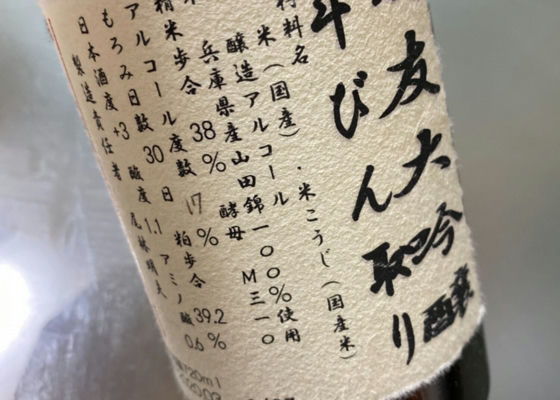 友大吟醸
斗びん取り
料名
米(国産)・米こうじ(国産米)
醸造アルコール
兵庫県産山田錦一〇〇%使用
精米歩合 38% 酵母 M三一〇
アルコール度数 17% 粕歩合 39.2
もろみ日数 30日 アミノ酸 0.6%
日本酒度 +3 酸度 1.1
製造責任者
720ml